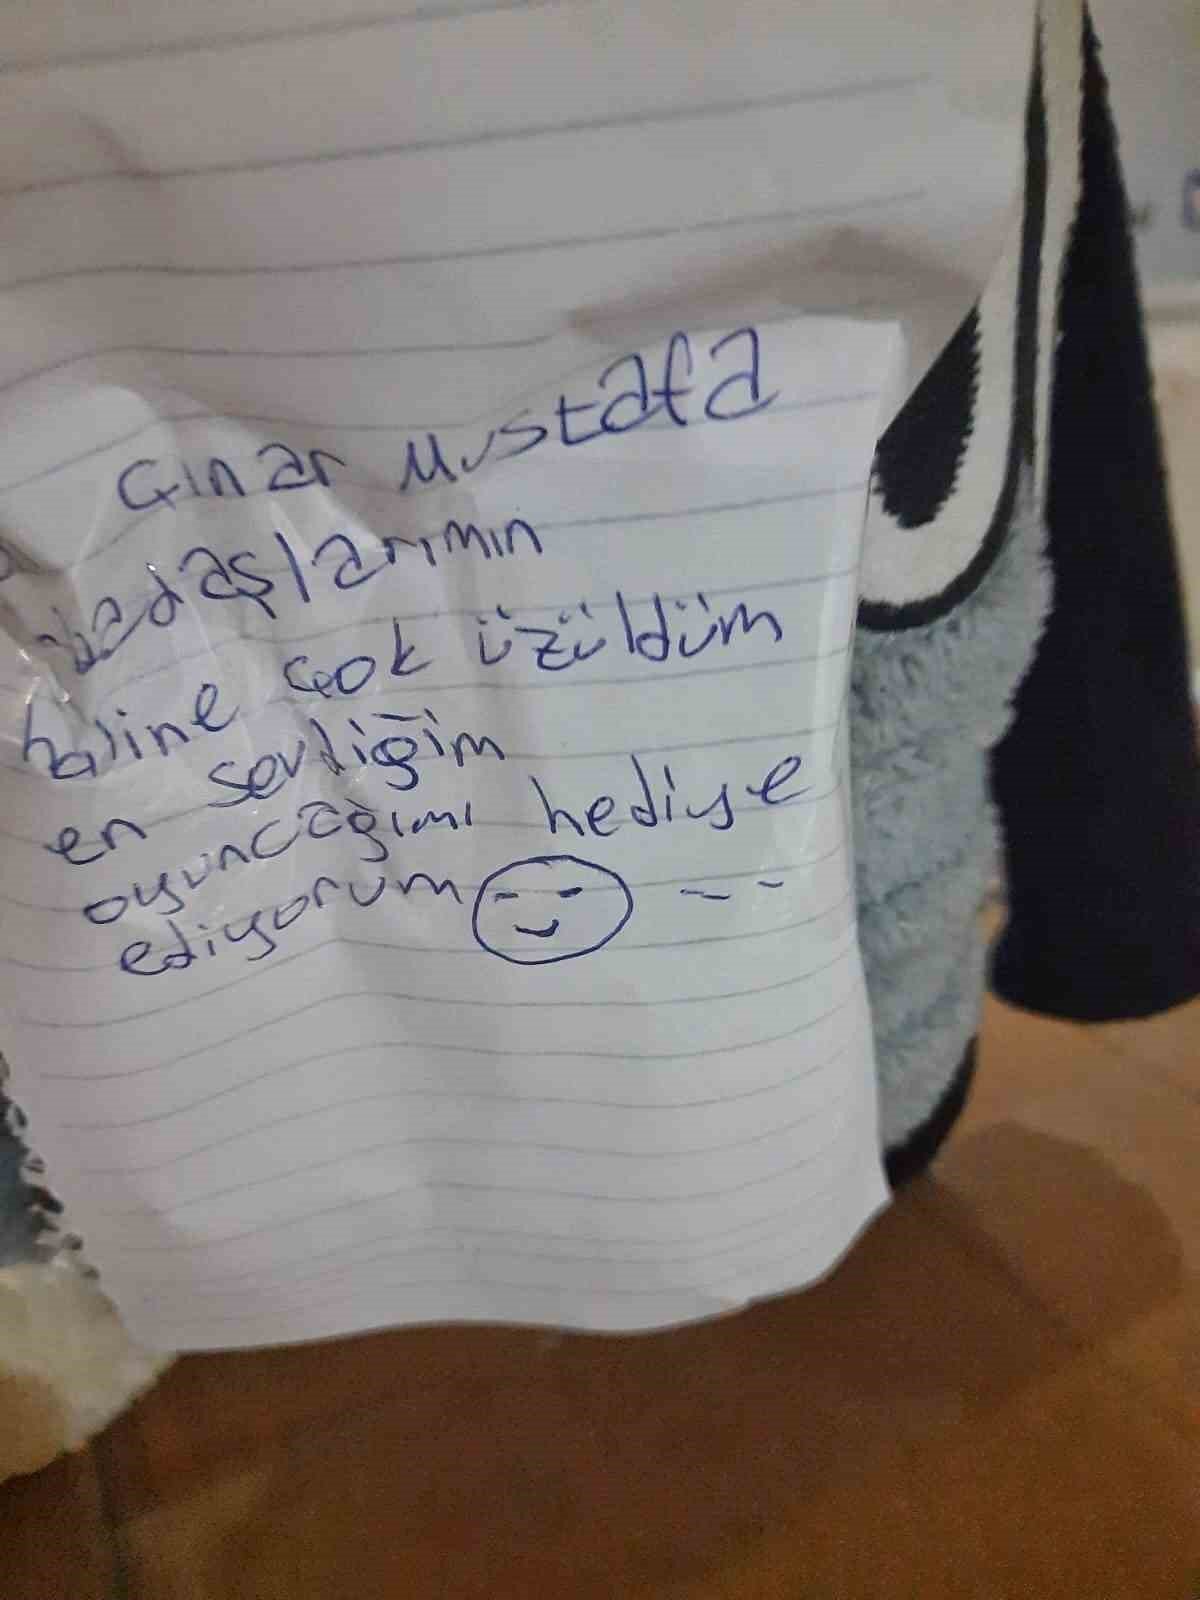 Çınar Mustafa
adaşlarımın
haline çok üzüldüm
en sevdiğim
oyuncağımı hediye
ediyorum